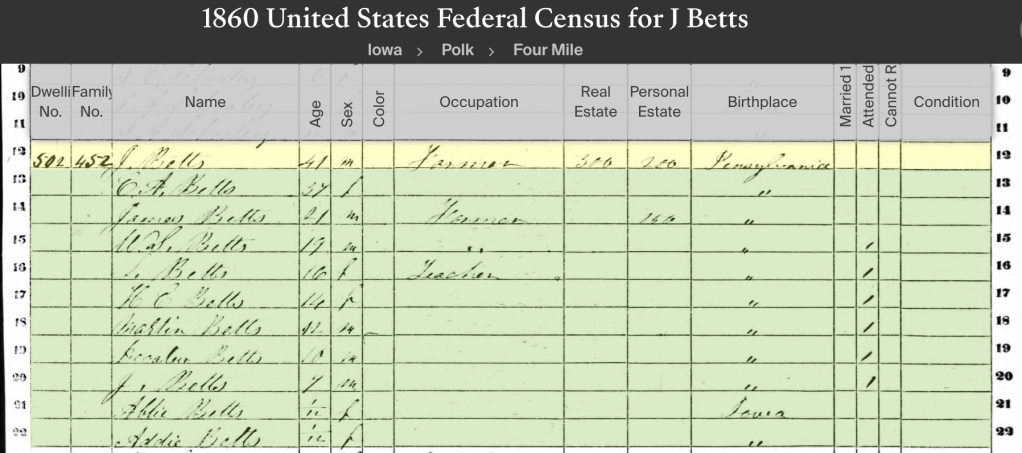 1860 United States Federal Census for J Betts
Iowa > Polk > Four Mile
9 9
Dwelli No. Family No. Name Age Sex Color Occupation Real Estate Personal Estate Birthplace Married 1 Attended Cannot R Condition
10 10
11 11
12 502 452 J. Betts 41 m Farmer 300 200 Pennsylvania 12
13 C. A. Betts 37 f " 13
14 James Betts 21 m Farmer 150 " 14
15 Betts 19 m " " / 15
16 Betts f Teacher " / 16
17 H C Betts 14 f " / 17
18 Martin Betts 12 m " / 18
19 Betts 10 m " / 19
20 J. Betts 7 m " / 20
21 Abbie Betts f Iowa 21
22 Addie Betts f " 22